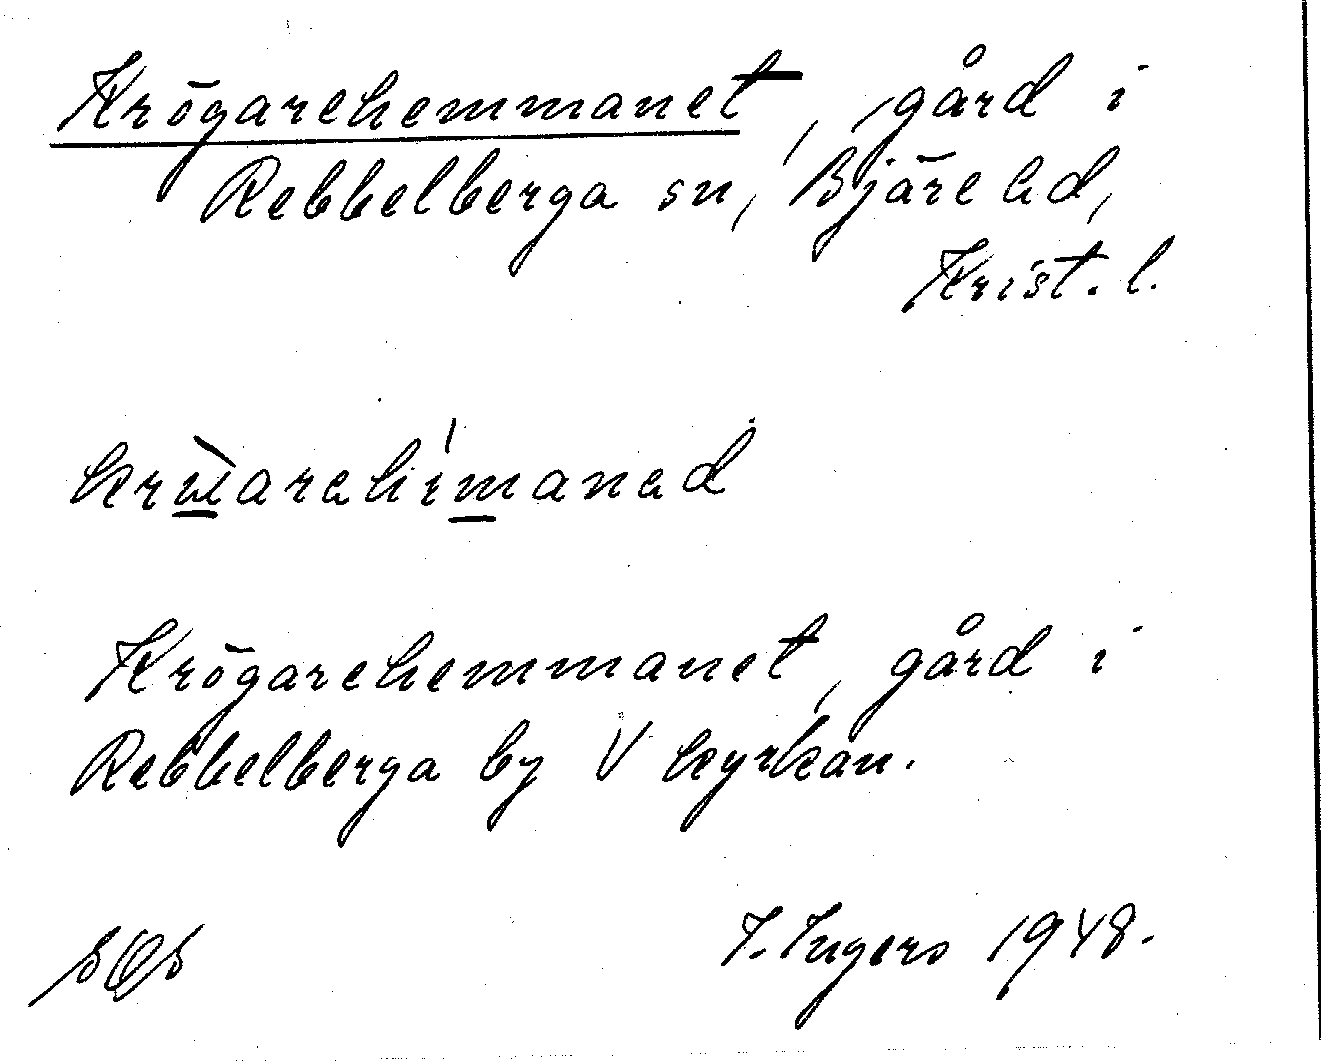 Krögarehemmanet, gård i
Rebbelberga sn, Bjäre hd,
Krist. l.
Krögarehemmanet, gård i
Rebbelberga by V kyrkan.
I. Ingers 1948.